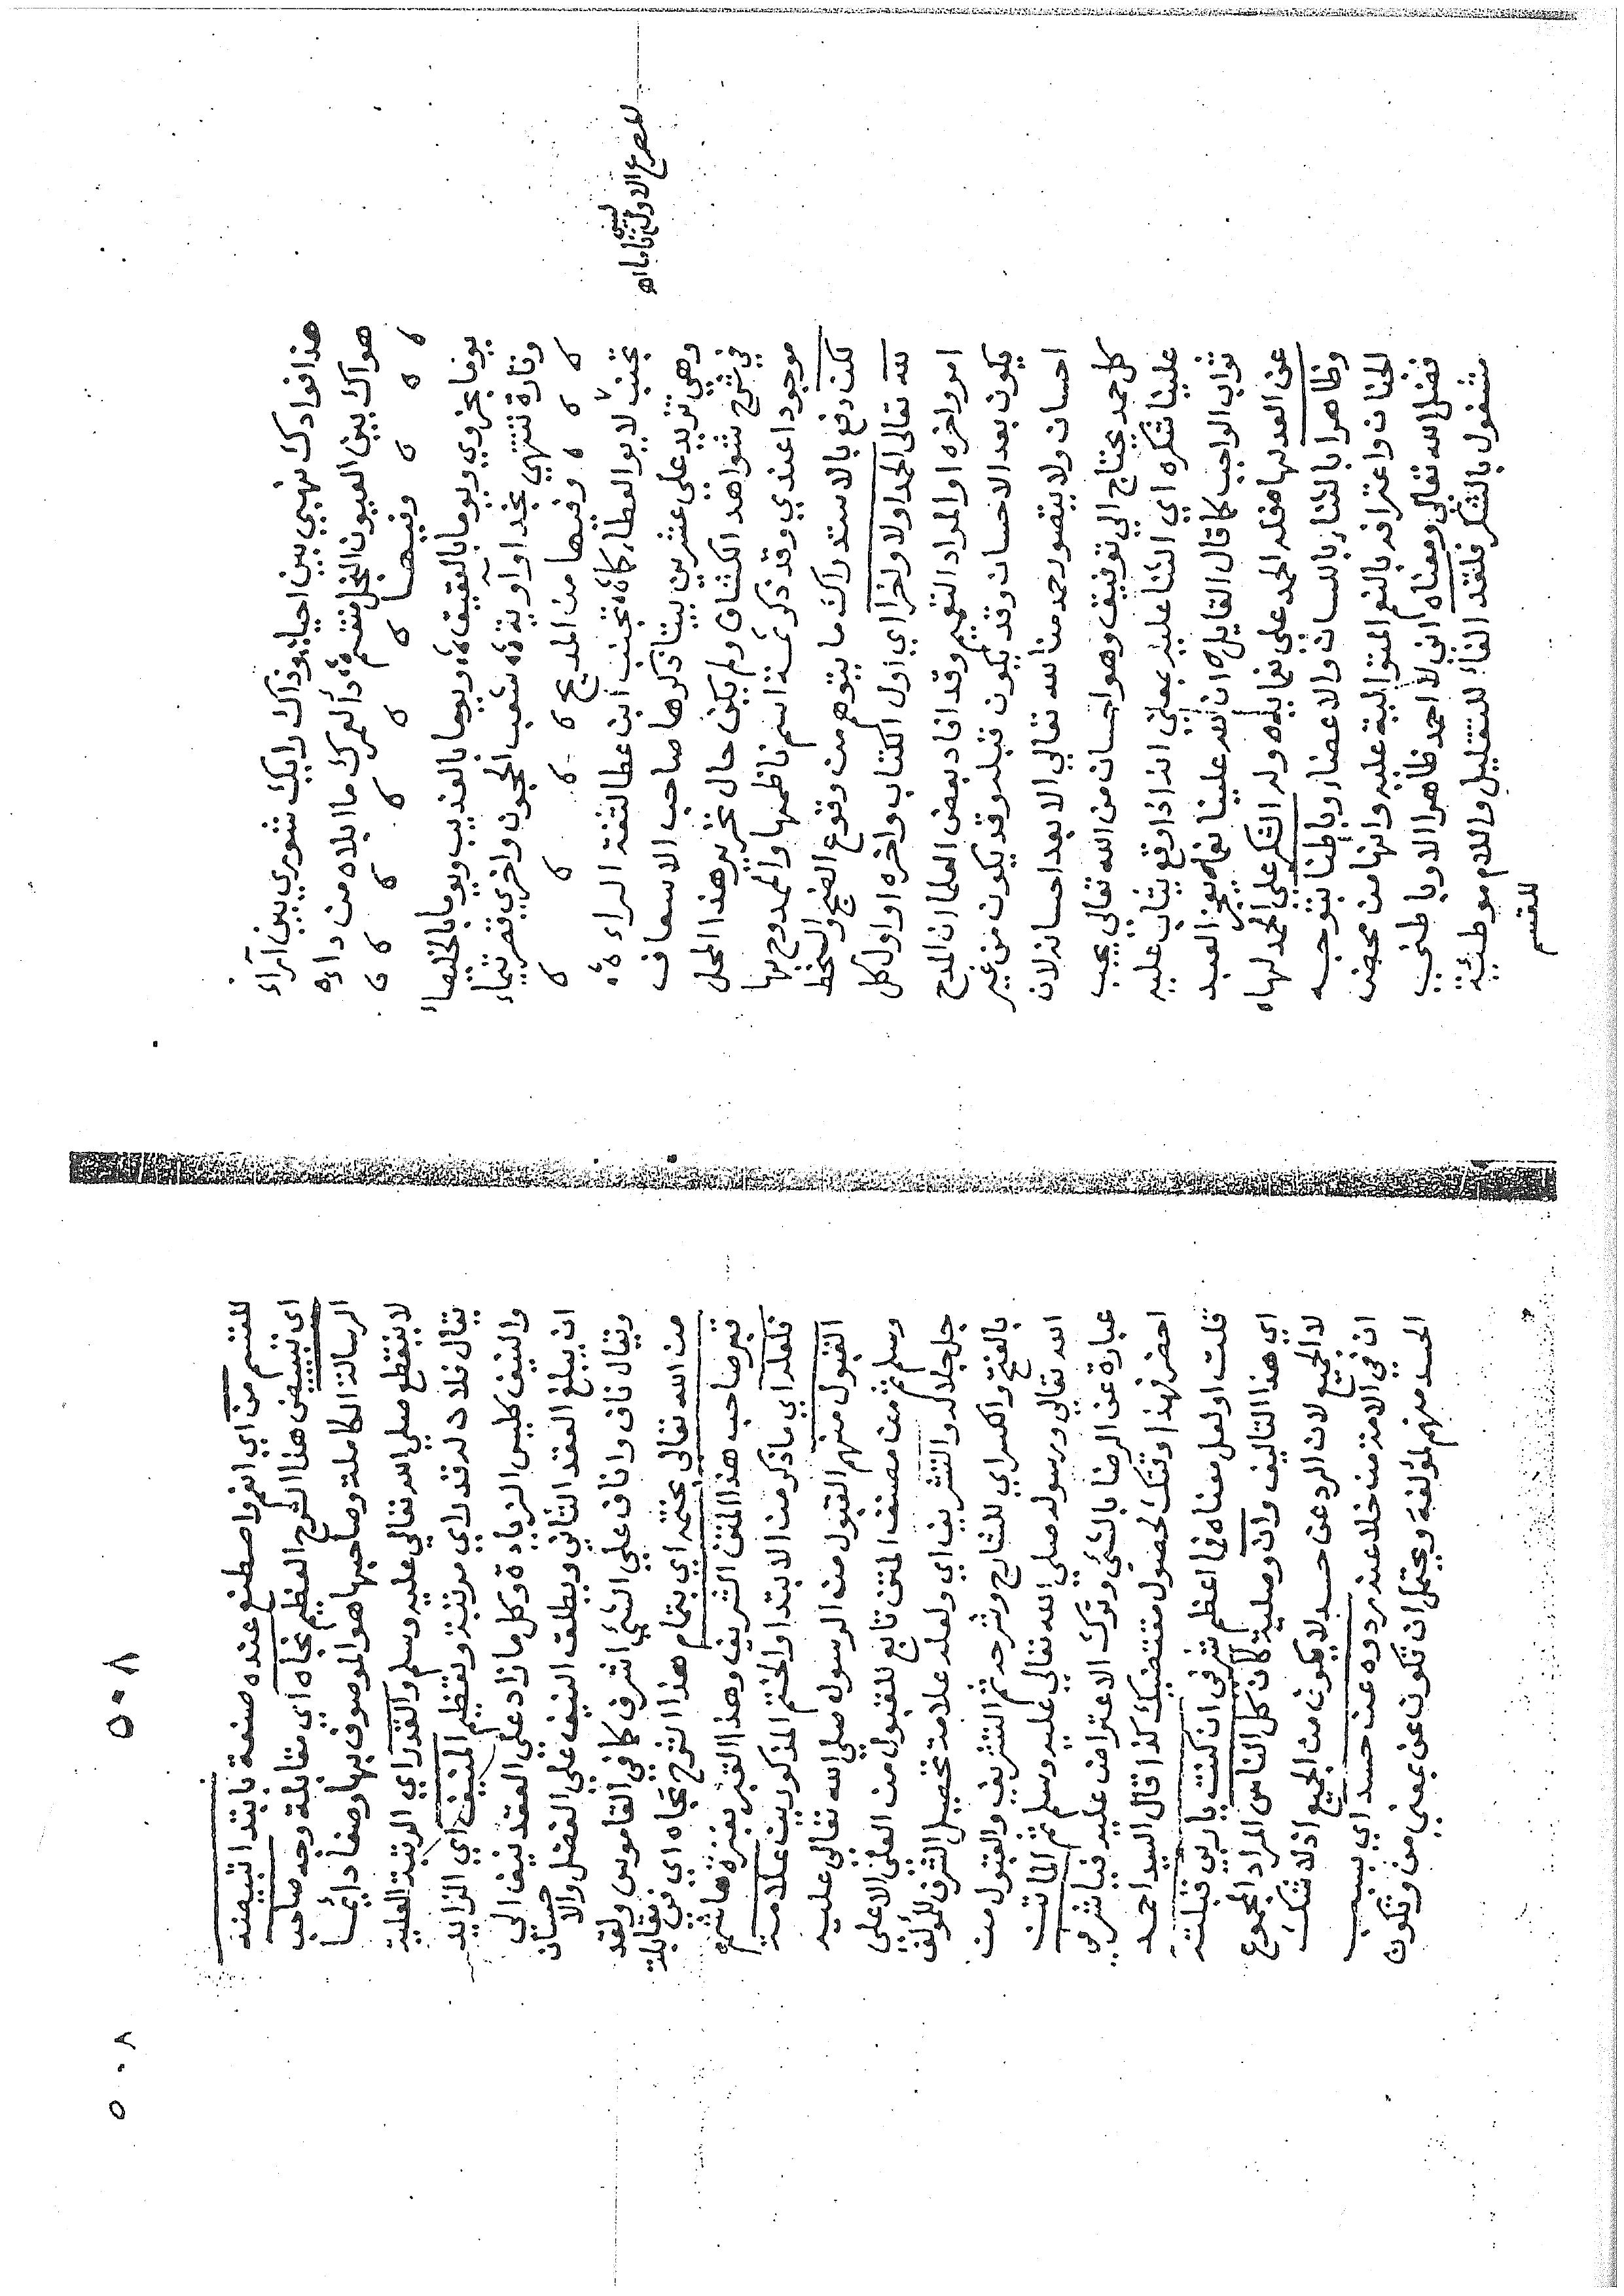 هذا فوادك نهبي بين احياء وذاك رايك شوري بين آراء
هواك بين العيون النجل نقتسم داء لعمرك ما ابلاه من داء
وفيها
يوما بحزوي ويوما بالعقيق ويوما بالعذيب ويوما بالخليصاء
وتارة تنتهي نجدا واونة شعب الحجون واخري قصر تيماء
وفيها من المديح
تجنب لا بو العطار كانه تجنب ابن عطا لثغة الراء
وهي تزيد علي عشرين بيتا ذكرها صاحب الاسعاف
في شرح شواهد الكشاف ولم يكن حال تحرير هذا المحل
موجودا عندي وقد ذكر ثمة اسم ناظمها والممدوح بها
لكن دفع بالاستدراك ما يتوهم من وقوع الضجر والسخط
لله تعالى الحمد اولا واخرا اي اول الكتاب واخره او اول كل
امر واخره او المراد التعميم وقد افاد بعض العلما ان المدح
يكون بعد الاحسان وقد يكون قبله وقد يكون من غير
احسان ولا يتصور حمد منا لله تعالي الا بعد احسانه لان
كل حمد يحتاج الي توفيق وهو احسان من الله تعالي يجب
علينا شكره اي الثنا عليه بمعني انه اذا وقع يثاب عليه
ثواب الواجب كما قال القايل ان لله علينا نعما يعجز العبد
عن العد لها فله الحمد علي نعمايله وله الشكر علي الحمد لها
وظاهرا بالثناء باللسان والاعضاء وباطنا بتوجه
الجنان واعترافه بالنعم المتوالية عليه وانها من محض
فضل الله تعالي ومعناه اني لا احمد ظاهرا الا وباطني
مشغول بالشكر فلقد الفاء للتقليل واللام موطئة
للقسم
للمصرع الاول
٥٠٨
للقسم من اي انعم واصطنع عنده صنعة بابتدا تبييضه
اي تبييض هذا الشرح العظيم تجاه اي مقابلة وجه صاحب
الرسالة الكاملة وصاحبها هو الموصوف بها وصفا دايما
لا ينقطع صلي الله تعالي عليه وسلم والقدر اي الرتبة العلية
يقال فلان له قدر اي مرتبة وتعظيم المنيف اي الزايد
والنيف ككيس الزيادة وكل ما زاد علي العقد نيف الي
ان يبلغ العقد الثاني ويطلق النيف علي الفضل والاحسان
ويقال ناف واناف علي الشي اشرف كما في القاموس ولقد
من الله تعالى بختمه اي بتمام هذا الشرح تجاه اي مقابلة
قبر صاحب هذا المتن الشريف وهذا القبر بغزة هاشم
فلعله اي ما ذكر من الابتدا والختم المذكورين علامة
القبول منهم القبول من الرسول صلي الله تعالي عليه
وسلم ثم من مصنف المتن تابع للقبول من العلي الاعلي
جل جلاله والتشريف اي ولعله علامة تحصيل الشرف للمؤلف
بالفتح والكسر اي للشارح وشرحه ثم التشريف والقبول من
الله تعالي ورسوله صلي الله تعالي عليه وسلم ثم الماتن
عبارة عن الرضا بالشي وترك الاعتراض عليه فيا شرفي
احضر فهذا وقتك لحصول مقتضيك كذا قال السيد احمد
قلت او لعل معناه فما اعظم شرفي ان كنت يا ربي قبلته
اي هذا التاليف وان وصلية كان كل الناس المراد المجموع
لا الجميع لان الرد عن حسد لا يكون من الجميع اذ لا شك
ان في الامة من خلا عنه ردوه عن حسد اي بسبب
الحسد منهم لمؤلفه ويحتمل ان تكون عن بمعني من وتكون
٥٠٨